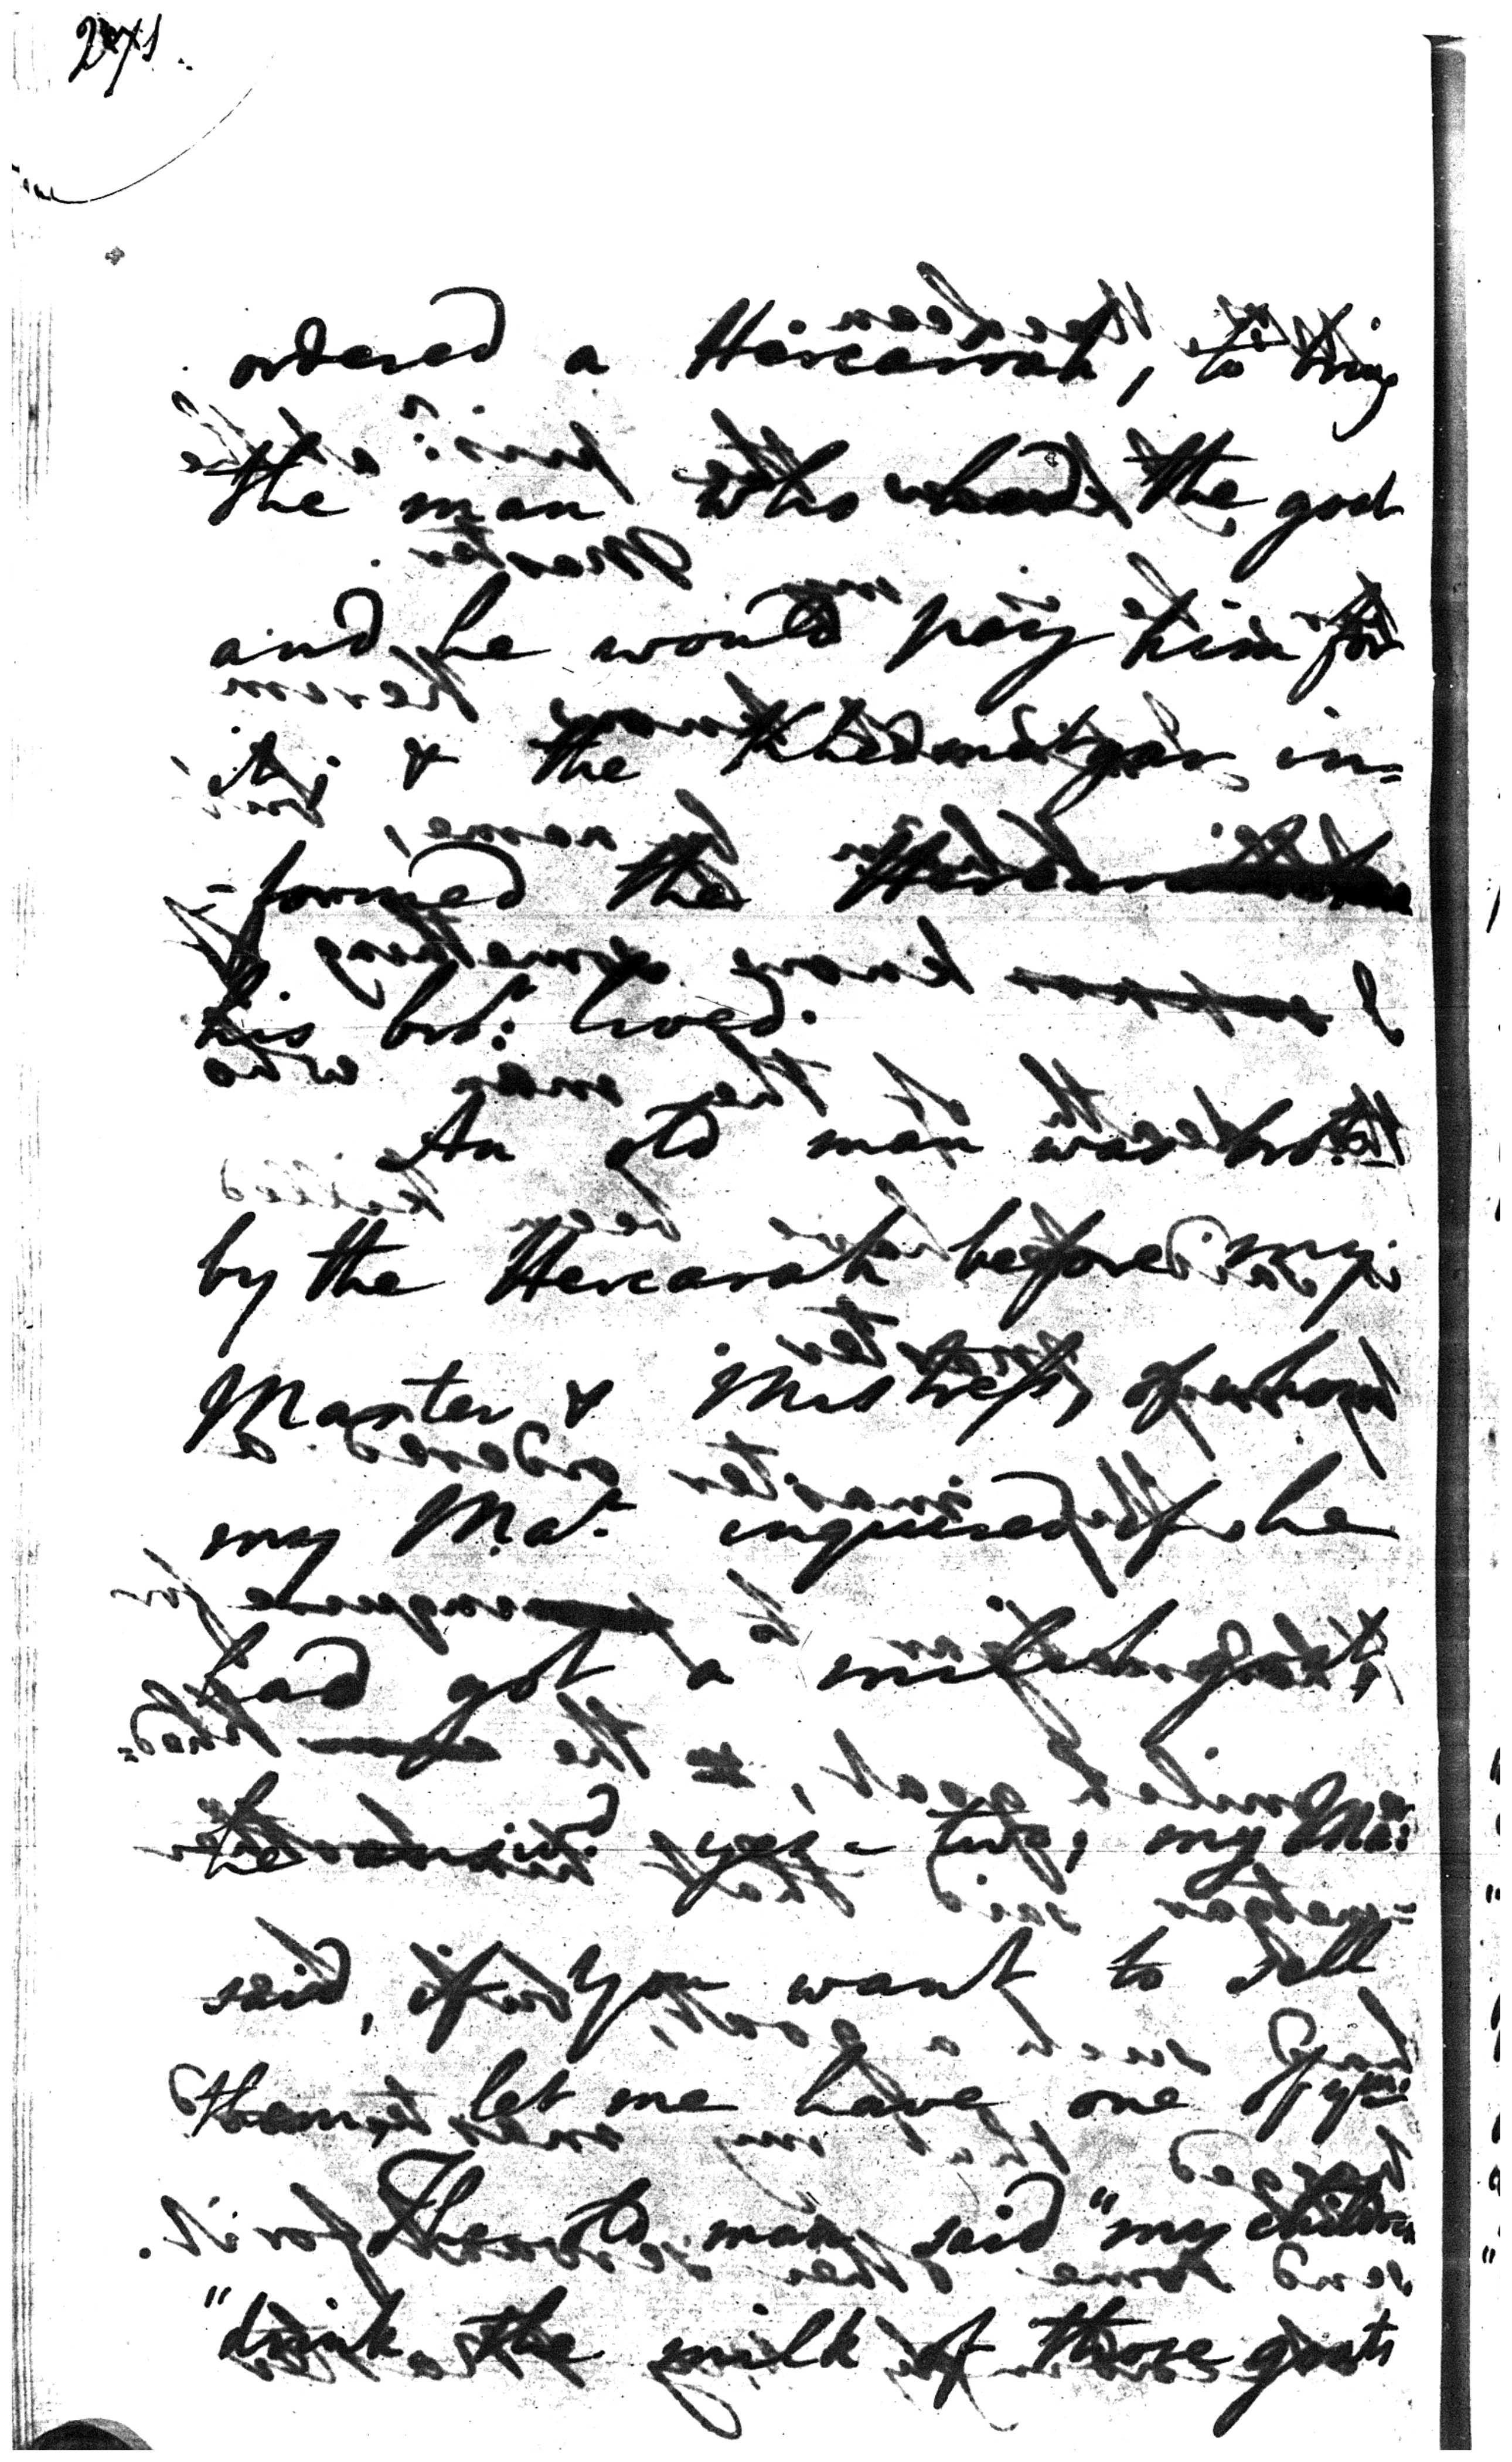 ordered a Hircarrah, to bring
the man who had the goat
and he would pay him for
it; & the Khedmatgar in=
-formed the
his bro.r lived.
An old man was bro.t
by the Hircarrah before my
Master & Mistress, of whom
my Ma.r inquired if he
had got a milch goat,
he said yes - two, my Ma.r
said, if you want to sell
them, let me have one of y.m
The old man said "my children
"drink the milk of those goats